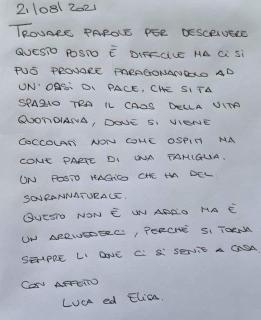 21/08/2021
TROVARE PAROLE PER DESCRIVERE
QUESTO POSTO È DIFFICILE MA CI SI
PUÒ PROVARE PARAGONANDOLO AD
UN'OASI DI PACE, CHE SI FA
SPAZIO TRA IL CAOS DELLA VITA
QUOTIDIANA, DOVE SI VIENE
COCCOLATI NON COME OSPITI MA
COME PARTE DI UNA FAMIGLIA.
UN POSTO MAGICO CHE HA DEL
SOVRANNATURALE.
QUESTO NON È UN ADDIO MA È
UN ARRIVEDERCI, PERCHÉ SI TORNA
SEMPRE LI DOVE CI SI SENTE A CASA.
CON AFFETTO
LUCA ED ELISA.